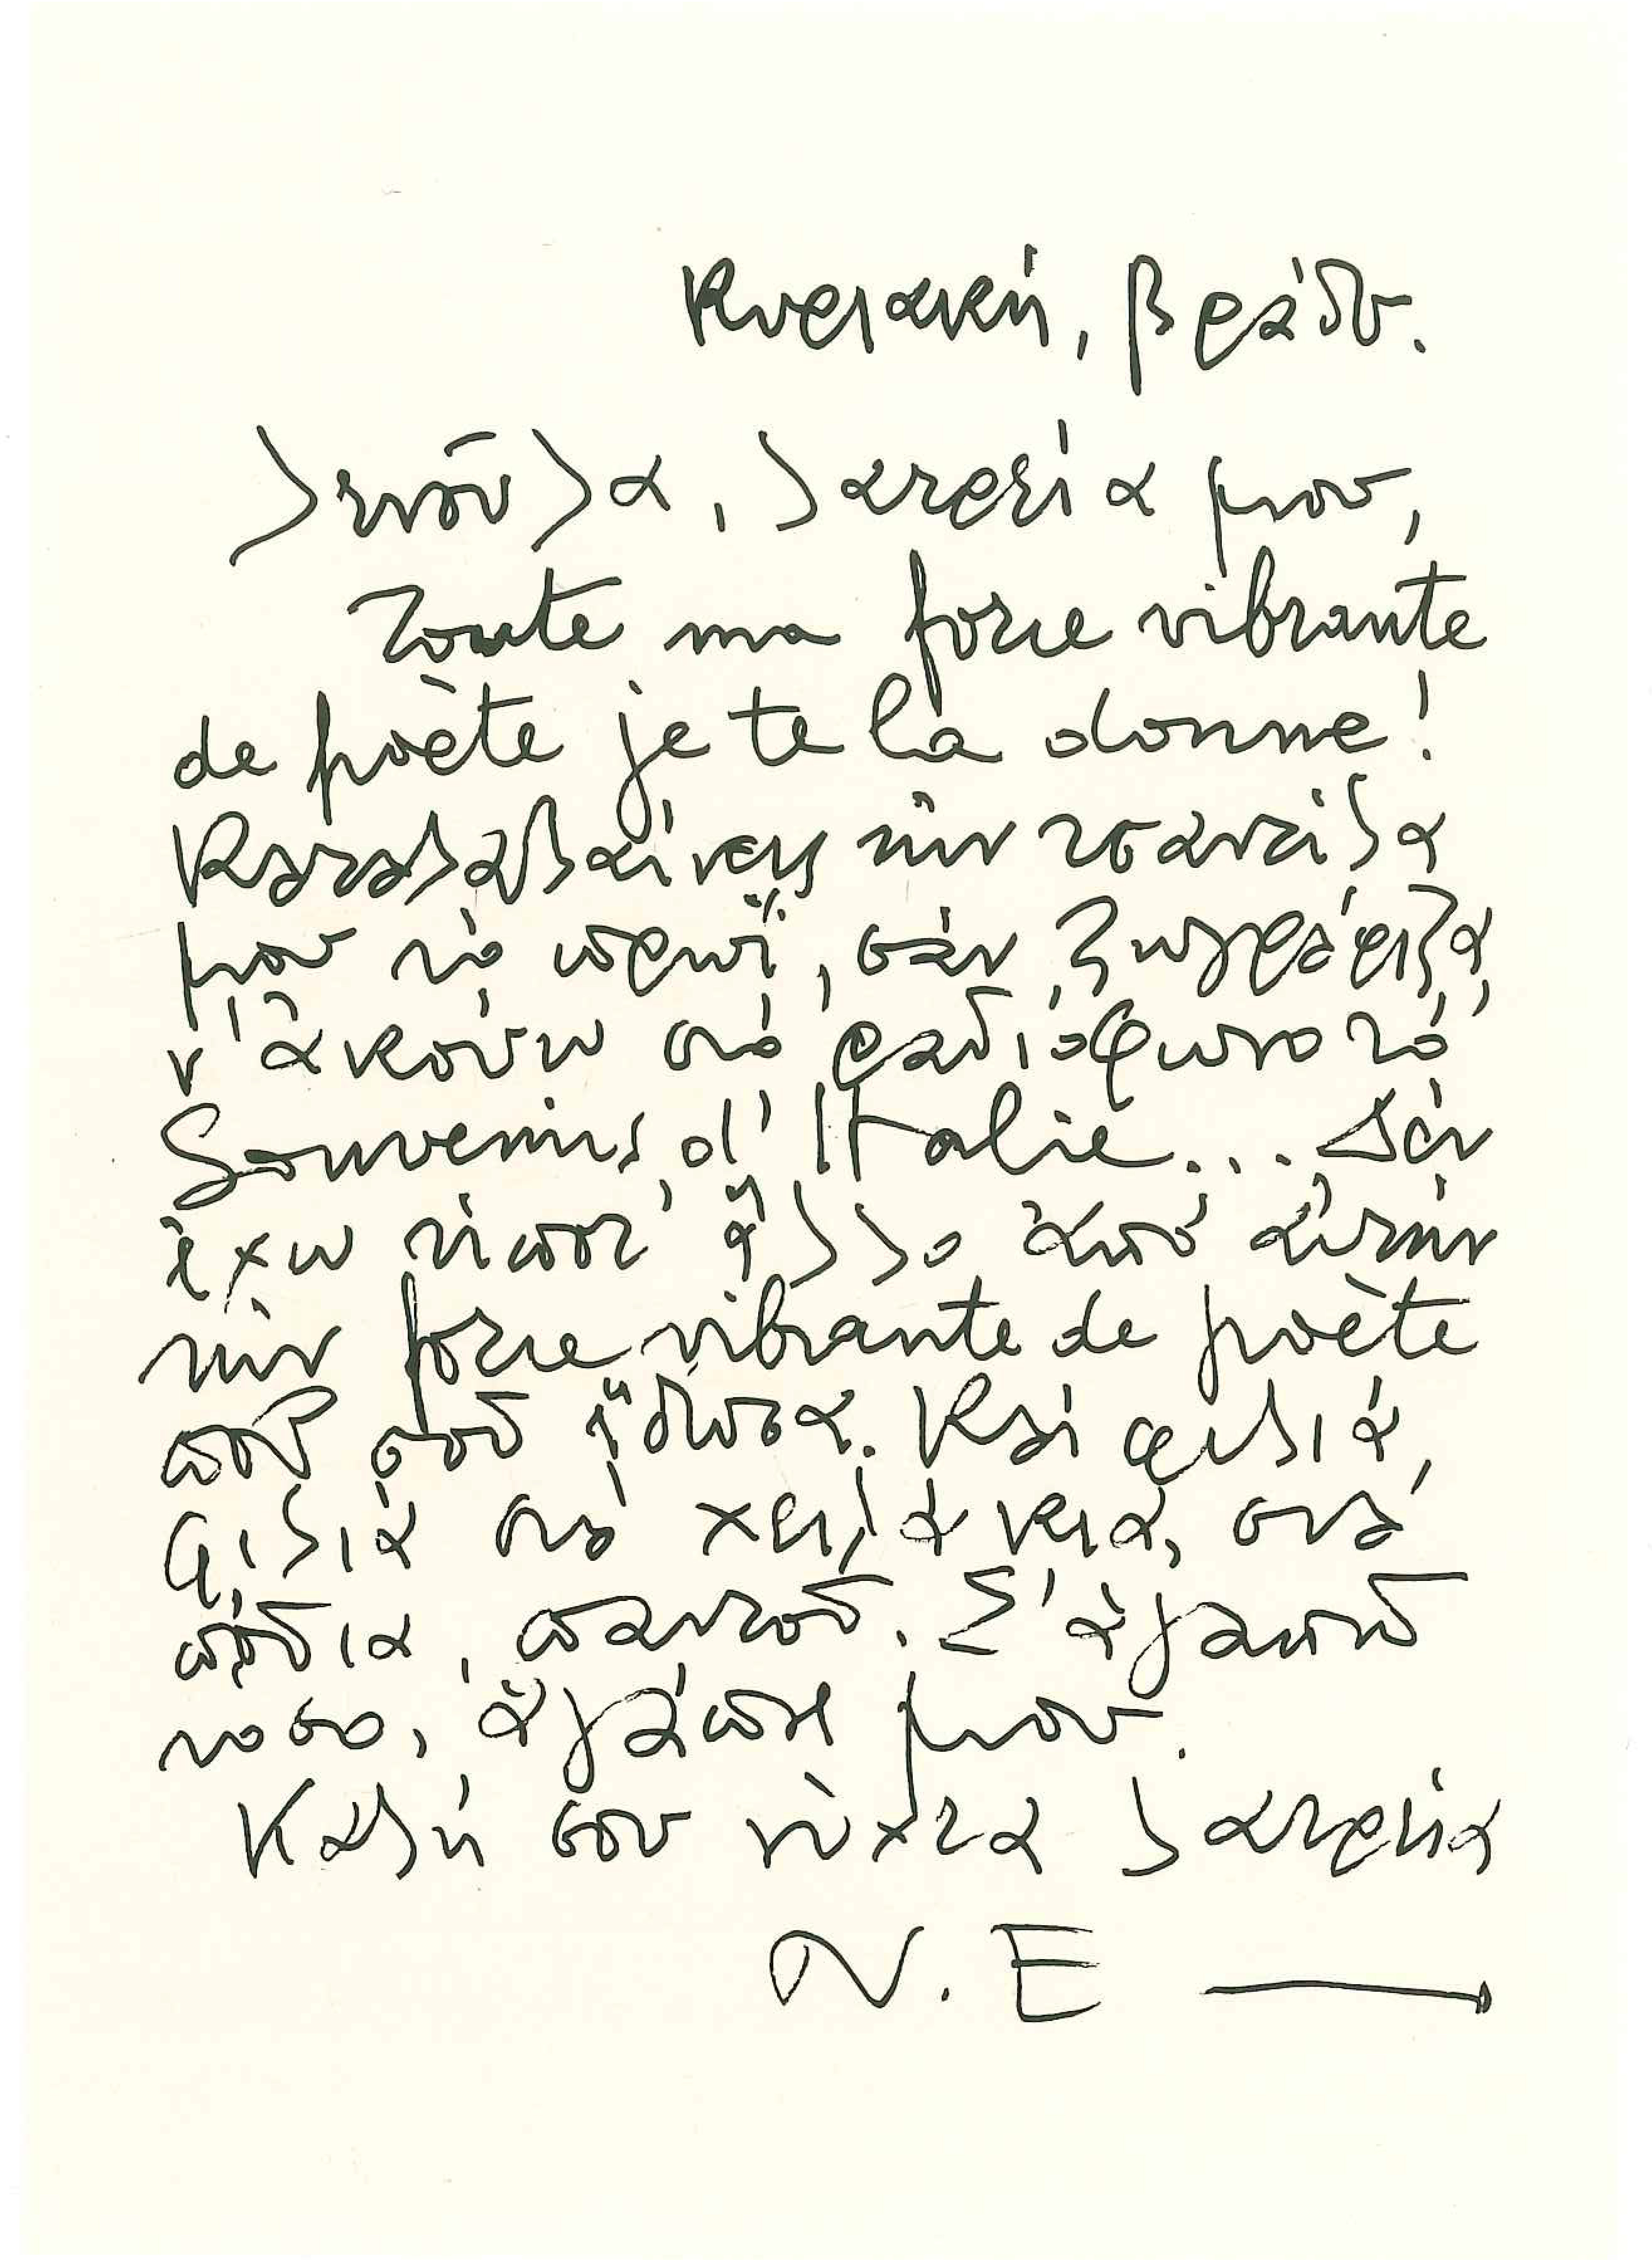 Κυριακή, βράδυ.
Λενούλα, λατρεία μου,
Toute ma force vibrante
de poète je te la donne!
Καταλαβαίνεις τὴν τσαντίλα
μου τὸ πρωΐ, σὰν ζωγράφιζα,
ν' ἀκούω στὸ ραδιόφωνο τὸ
Souvenirs d'Italie... Δὲν
ἔχω τίποτ' ἄλλο ἀπὸ αὐτὴν
τὴν force vibrante de poète
ποὺ σοῦ ἔδωσα. Καὶ φιλιά,
φιλιὰ στὰ χεράκια, στὰ
πόδια, παντοῦ. Σ' ἀγαπῶ
τοσο, ἀγάπη μου.
Καλή σου νύχτα λατρεία
Ν. Ε